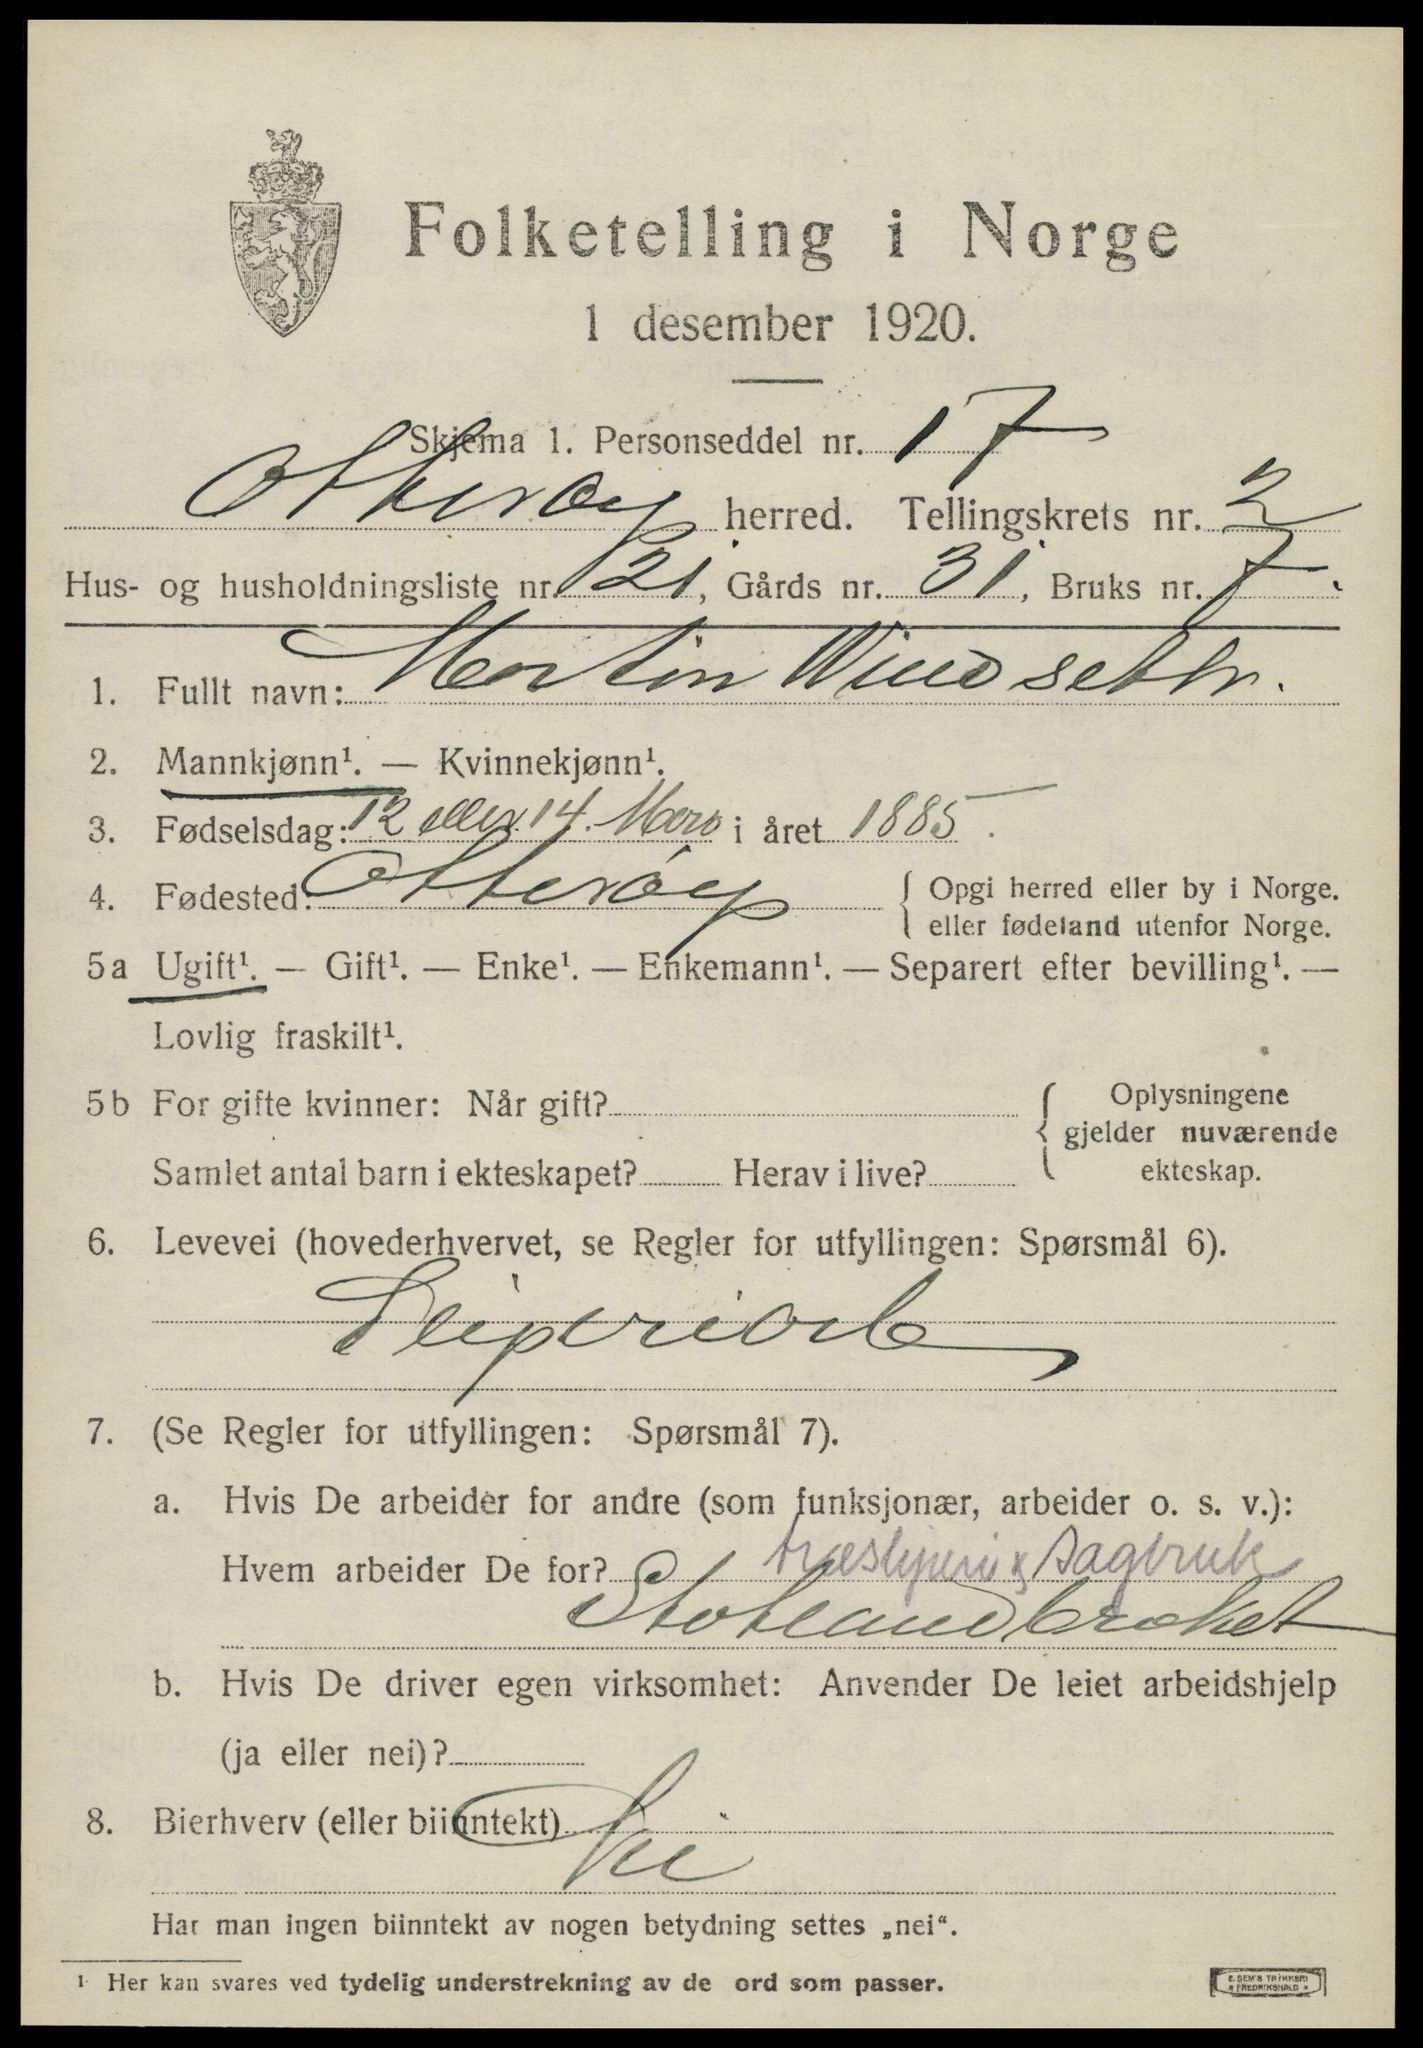 Folketelling i Norge
1 desember 1920.
Skjema 1. Personseddel nr. 17
Otterøy herred. Tellingskrets nr. 2
Hus- og husholdningsliste nr. 21, Gårds nr. 31, Bruks nr. 7.
1. Fullt navn: Martin
2. Mannkjønn¹. — Kvinnekjønn¹.
3. Fødselsdag: 12 eller 14. Mars i året 1885.
4. Fødested: Otterøy { Opgi herred eller by i Norge.
eller fødeland utenfor Norge.
5a Ugift¹. — Gift¹. — Enke¹. — Enkemann¹. — Separert efter bevilling¹. —
Lovlig fraskilt¹.
5b For gifte kvinner: Når gift? { Oplysningene
gjelder nuværende
Samlet antal barn i ekteskapet? Herav i live? ekteskap.
6. Levevei (hovederhvervet, se Regler for utfyllingen: Spørsmål 6).
Sliperiarb
7. (Se Regler for utfyllingen: Spørsmål 7).
a. Hvis De arbeider for andre (som funksjonær, arbeider o. s. v.):
træsliperi & sagbruk
Hvem arbeider De for?
b. Hvis De driver egen virksomhet: Anvender De leiet arbeidshjelp
(ja eller nei)?
8. Bierhverv (eller biinntekt) Nei
Har man ingen biinntekt av nogen betydning settes „nei“.
1 Her kan svares ved tydelig understrekning av de ord som passer.
E. SEM'S TRYKKERI
FREDRIKSHALD